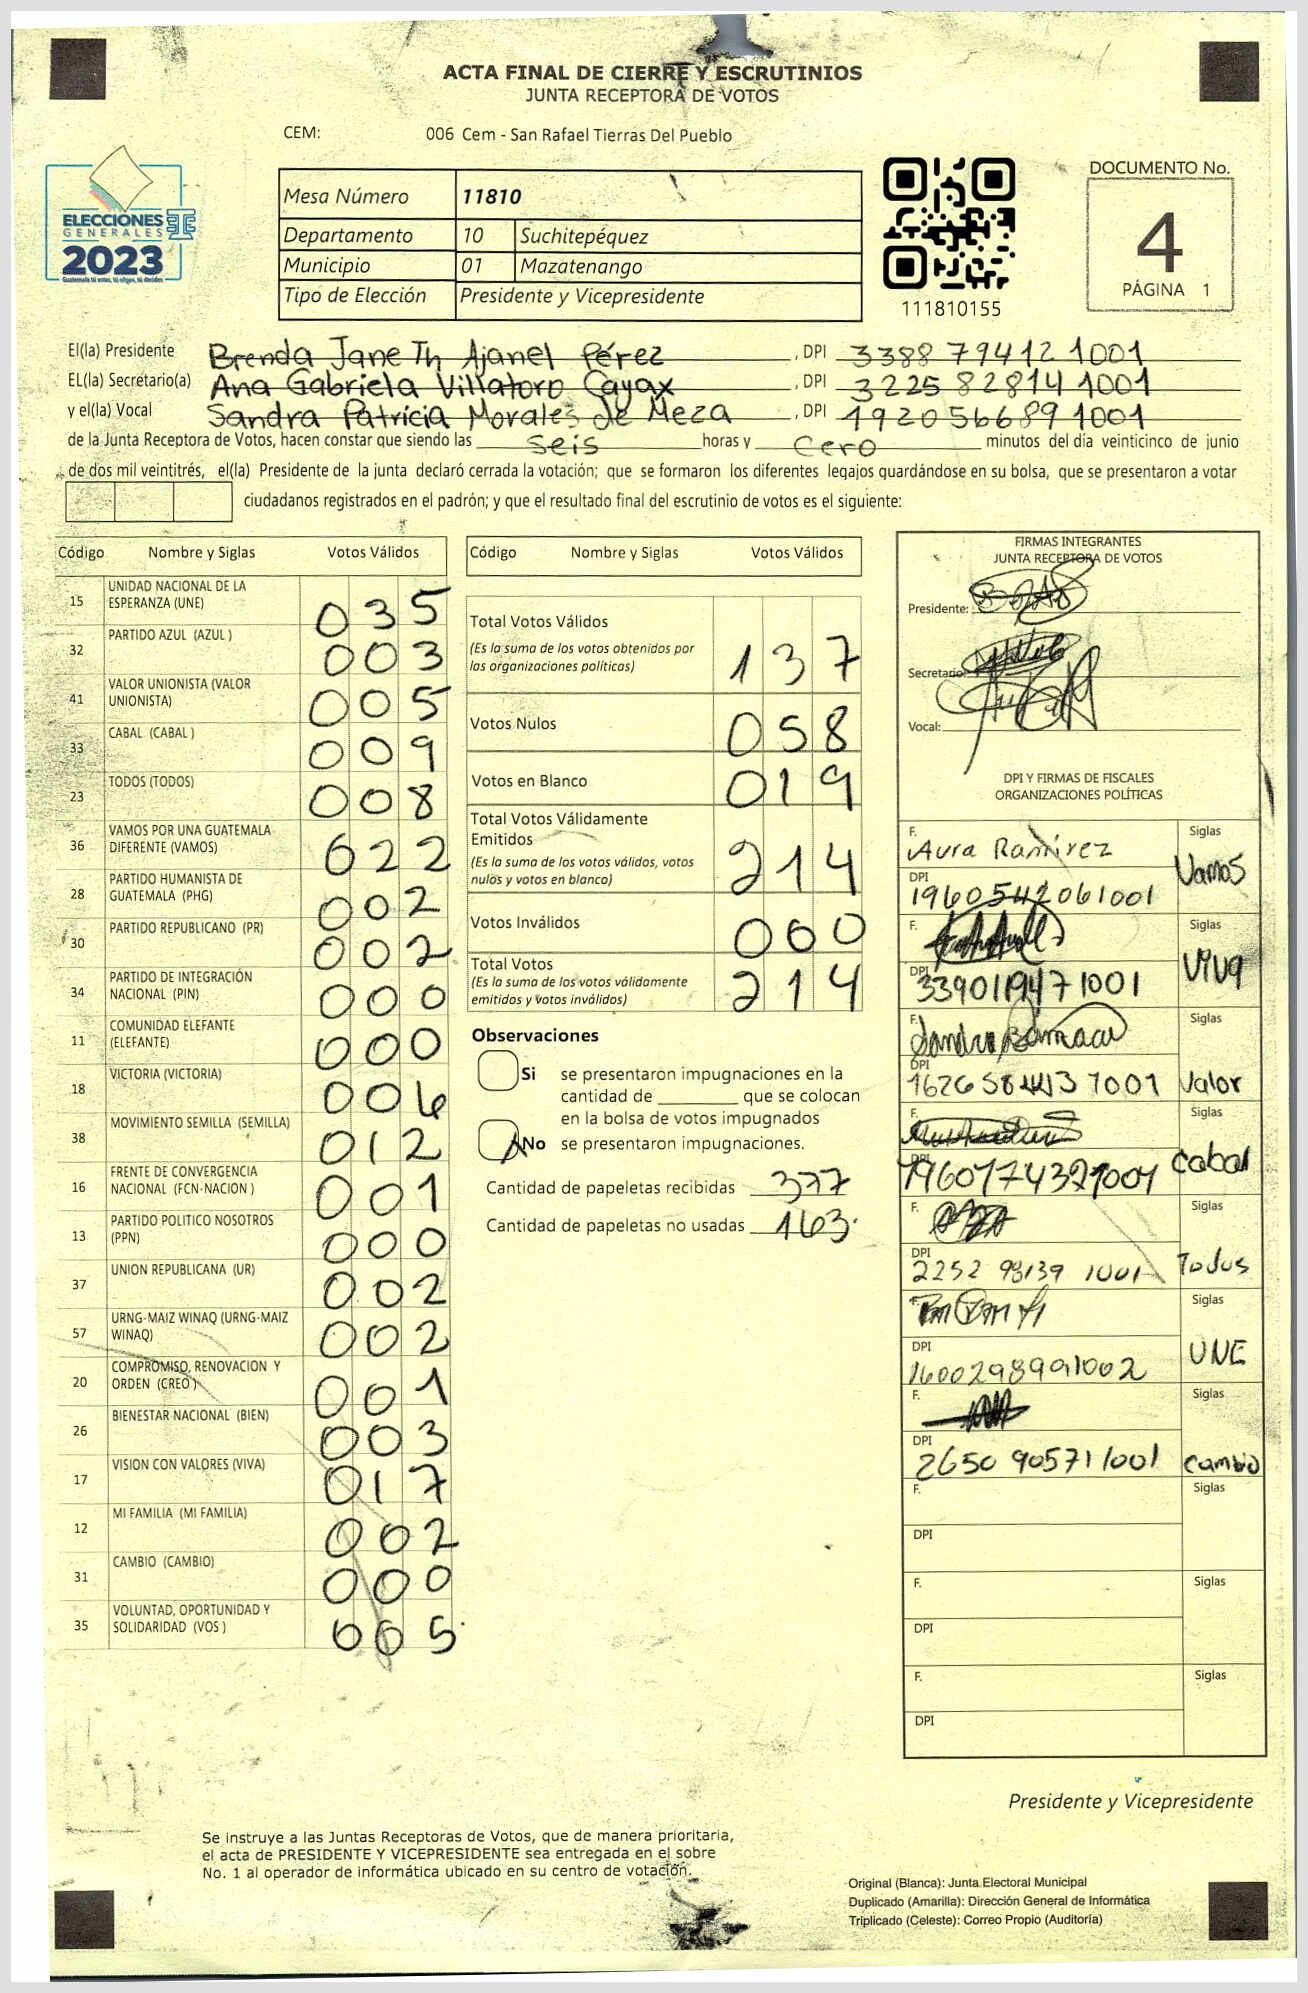 ACTA FINAL DE CIERRE Y ESCRUTINIOS
JUNTA RECEPTORA DE VOTOS
CEM: 006 Cem - San Rafael Tierras Del Pueblo
ELECCIONES
GENERALES
2023
Guatemala tú votas, tú eliges, tú decides
Mesa Número 11810
Departamento 10 Suchitepéquez
Municipio 01 Mazatenango
Tipo de Elección Presidente y Vicepresidente
111810155
DOCUMENTO No.
4
PÁGINA 1
El(la) Presidente Brenda JaneTh Ajanel Pérez, DPI 3388 79412 1001
EL(la) Secretario(a) Ana Gabriela Villatoro Cayax, DPI 3225 82814 1001
y el(la) Vocal Sandra Patricia Morales de Meza, DPI 1920 56689 1001
de la Junta Receptora de Votos, hacen constar que siendo las seis horas y cero minutos del día veinticinco de junio
de dos mil veintitrés, el(la) Presidente de la junta declaró cerrada la votación; que se formaron los diferentes legajos guardándose en su bolsa, que se presentaron a votar
ciudadanos registrados en el padrón; y que el resultado final del escrutinio de votos es el siguiente:
Código Nombre y Siglas Votos Válidos
15 UNIDAD NACIONAL DE LA ESPERANZA (UNE) 035
32 PARTIDO AZUL (AZUL ) 003
41 VALOR UNIONISTA (VALOR UNIONISTA) 005
33 CABAL (CABAL ) 009
23 TODOS (TODOS) 008
36 VAMOS POR UNA GUATEMALA DIFERENTE (VAMOS) 022
28 PARTIDO HUMANISTA DE GUATEMALA (PHG) 002
30 PARTIDO REPUBLICANO (PR) 002
34 PARTIDO DE INTEGRACIÓN NACIONAL (PIN) 000
11 COMUNIDAD ELEFANTE (ELEFANTE) 000
18 VICTORIA (VICTORIA) 006
38 MOVIMIENTO SEMILLA (SEMILLA) 012
16 FRENTE DE CONVERGENCIA NACIONAL (FCN-NACION ) 001
13 PARTIDO POLITICO NOSOTROS (PPN) 000
37 UNION REPUBLICANA (UR) 002
57 URNG-MAIZ WINAQ (URNG-MAIZ WINAQ) 002
20 COMPROMISO, RENOVACION Y ORDEN (CREO ) 001
26 BIENESTAR NACIONAL (BIEN) 003
17 VISION CON VALORES (VIVA) 017
12 MI FAMILIA (MI FAMILIA) 002
31 CAMBIO (CAMBIO) 000
35 VOLUNTAD, OPORTUNIDAD Y SOLIDARIDAD (VOS ) 005
Código Nombre y Siglas Votos Válidos
Total Votos Válidos 137
(Es la suma de los votos obtenidos por
las organizaciones políticas)
Votos Nulos 058
Votos en Blanco 019
Total Votos Válidamente
Emitidos 214
(Es la suma de los votos válidos, votos
nulos y votos en blanco)
Votos Inválidos 000
Total Votos 214
(Es la suma de los votos válidamente
emitidos y votos inválidos)
Observaciones
Si se presentaron impugnaciones en la
cantidad de ________ que se colocan
en la bolsa de votos impugnados
No se presentaron impugnaciones.
Cantidad de papeletas recibidas 377
Cantidad de papeletas no usadas 163
FIRMAS INTEGRANTES
JUNTA RECEPTORA DE VOTOS
Presidente:
Secretario:
Vocal:
DPI Y FIRMAS DE FISCALES
ORGANIZACIONES POLÍTICAS
F. Aura Ramirez Siglas
DPI 1960542061001 Vamos
F. Siglas
DPI 3390119471001 VIVA
F. Siglas
DPI Valor
F. Siglas
DPI 1960174321001 Cabal
F. Siglas
DPI 2252 98139 1001 Todos
F. Siglas
DPI 1600298991002 UNE
F. Siglas
DPI 2650 90571 1001 Cambio
F. Siglas
DPI
F. Siglas
DPI
F. Siglas
DPI
Presidente y Vicepresidente
Se instruye a las Juntas Receptoras de Votos, que de manera prioritaria,
el acta de PRESIDENTE Y VICEPRESIDENTE sea entregada en el sobre
No. 1 al operador de informática ubicado en su centro de votación.
Original (Blanca): Junta Electoral Municipal
Duplicado (Amarilla): Dirección General de Informática
Triplicado (Celeste): Correo Propio (Auditoría)